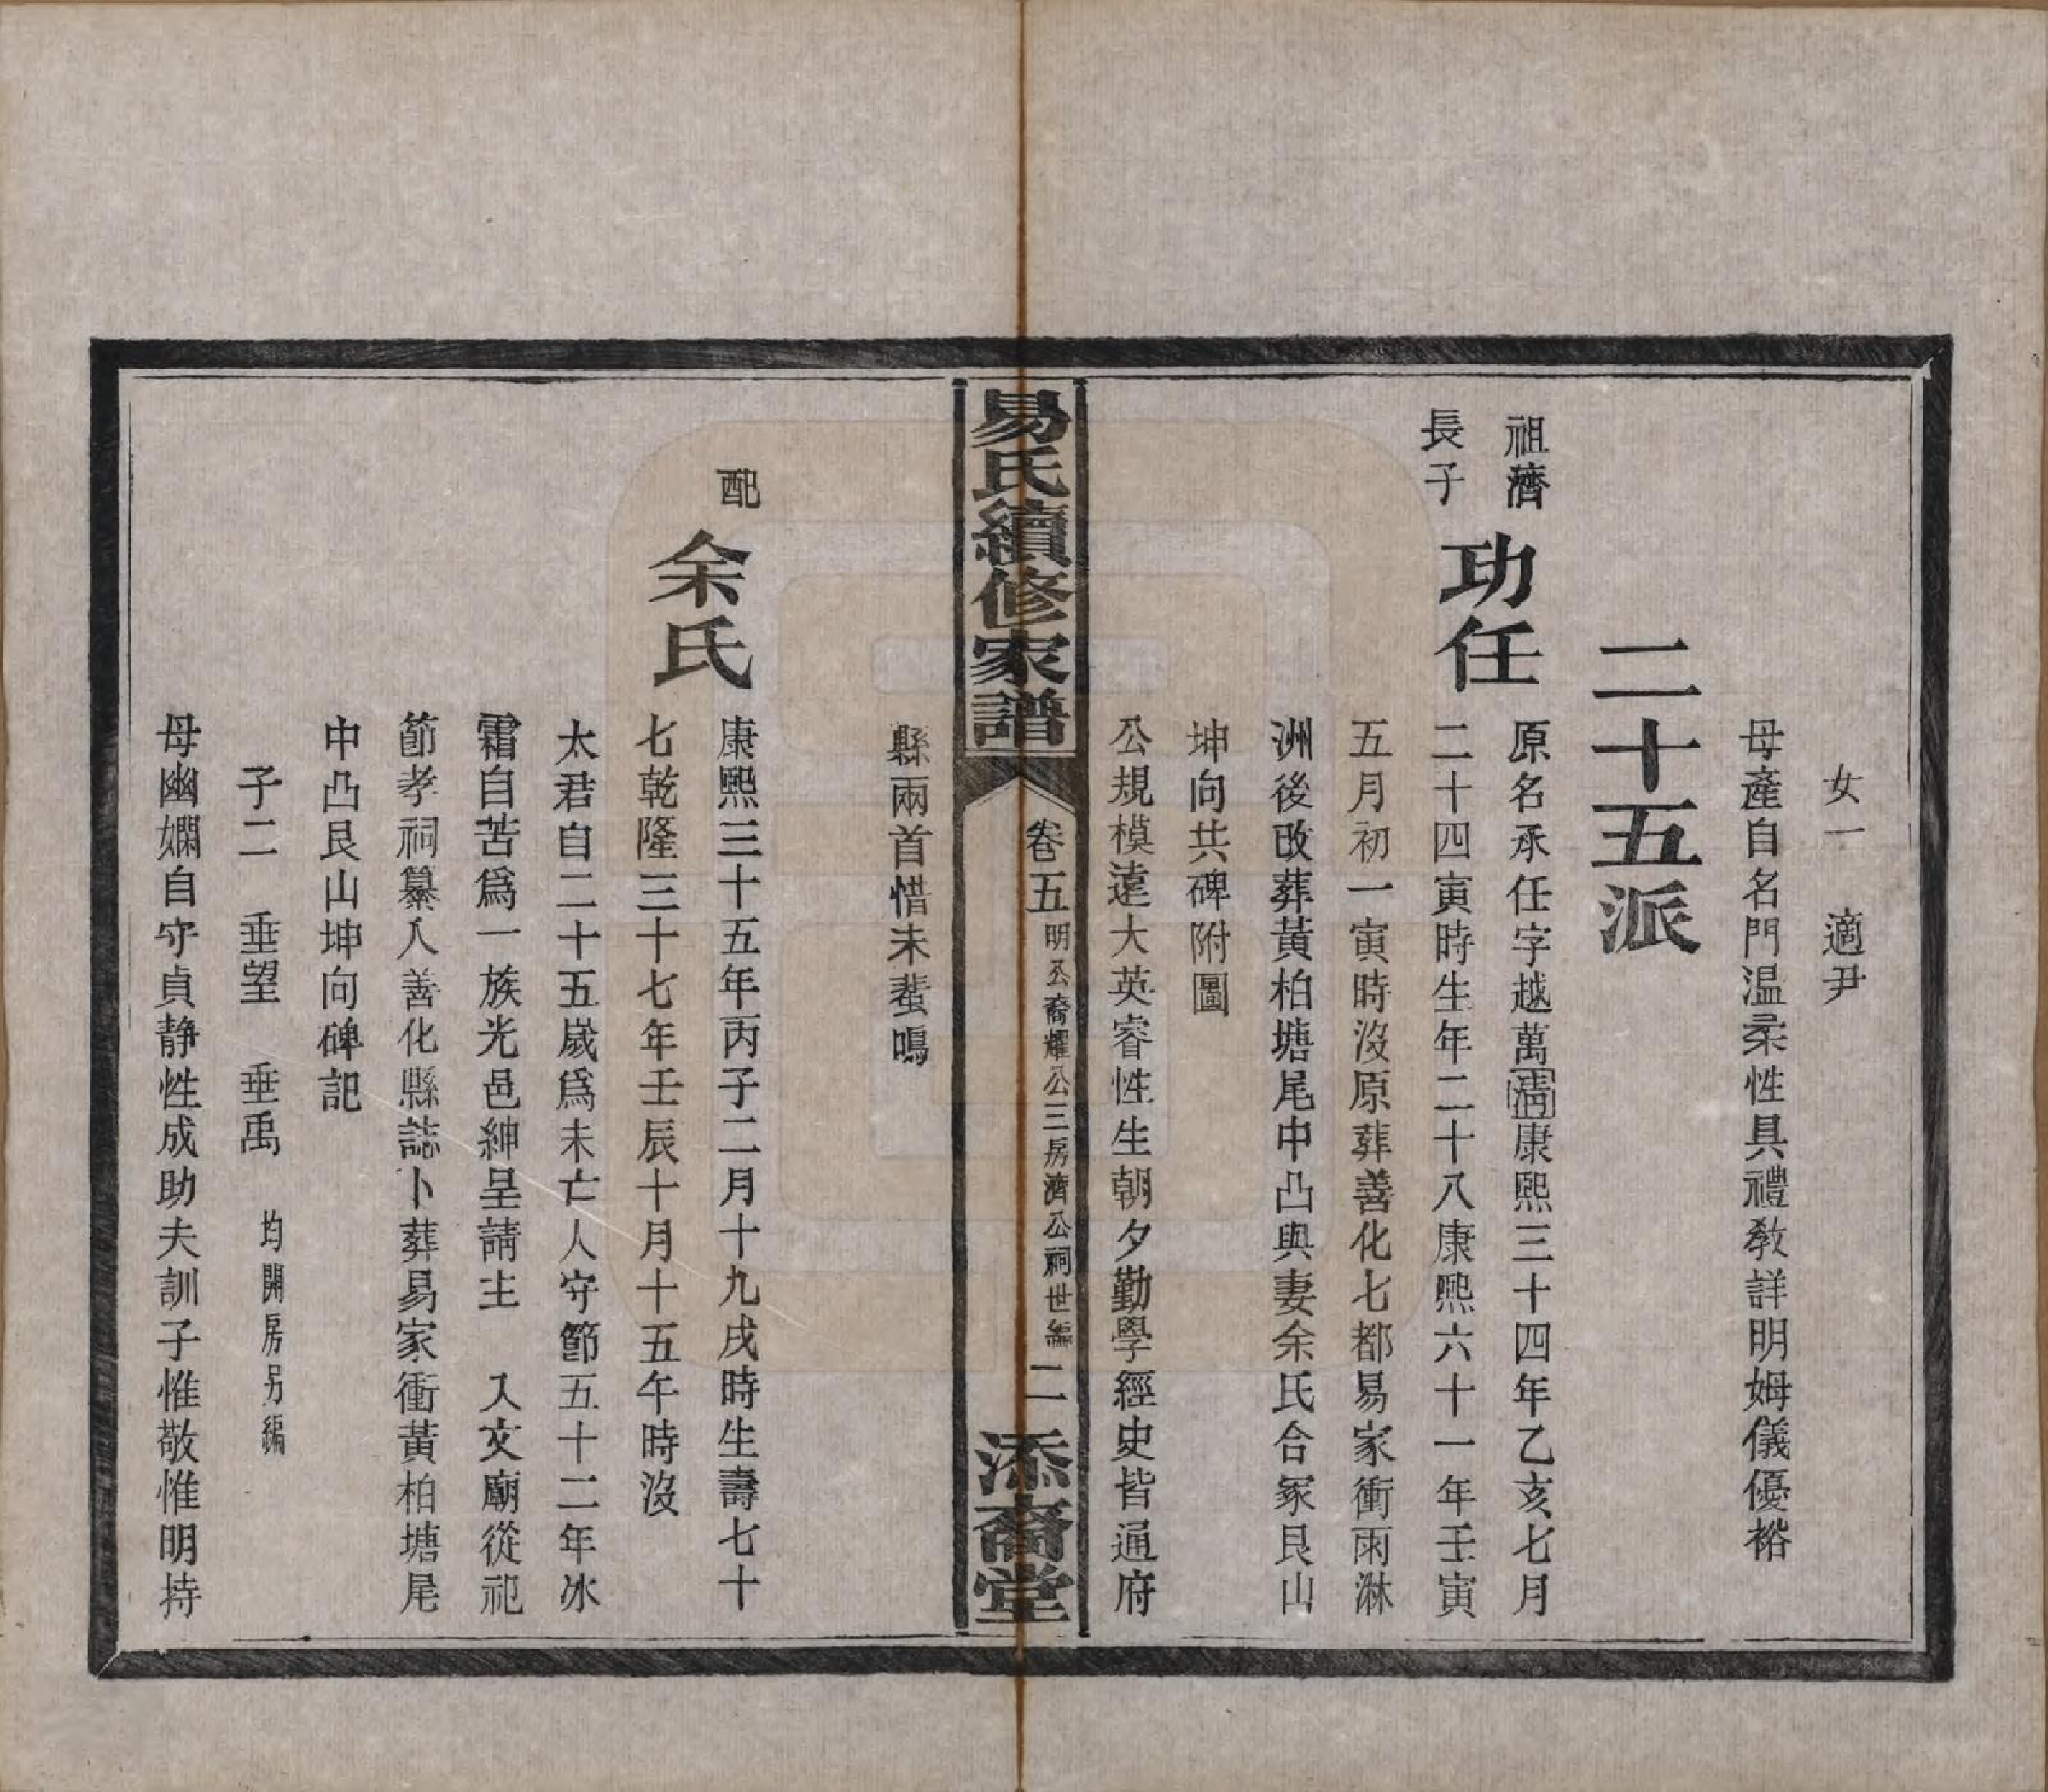 女一　適尹
母產自名門温柔性具禮教詳明姆儀優裕
二十五派
祖濟
長子
功任
原名承任字越萬清康熙三十四年乙亥七月
二十四寅時生年二十八康熙六十一年壬寅
五月初一寅時沒原葬善化七都易家衝雨淋
洲後改葬黃柏塘尾中凸與妻余氏合冢艮山
坤向共碑附圖
公規模遠大英睿性生朝夕勤學經史皆通府
易氏續修家譜
卷五
明公裔耀公三房濟公祠世編
二
添裔堂
縣兩首惜未蜚鳴
配
余氏
康熙三十五年丙子二月十九戌時生壽七十
七乾隆三十七年壬辰十月十五午時沒
太君自二十五歲爲未亡人守節五十二年冰
霜自苦爲一族光邑紳呈請主　入文廟從祀
節孝祠纂入善化縣誌卜葬易家衝黃柏塘尾
中凸艮山坤向碑記
子二　垂望　垂禹　均開房另編
母幽嫻自守貞靜性成助夫訓子惟敬惟明持